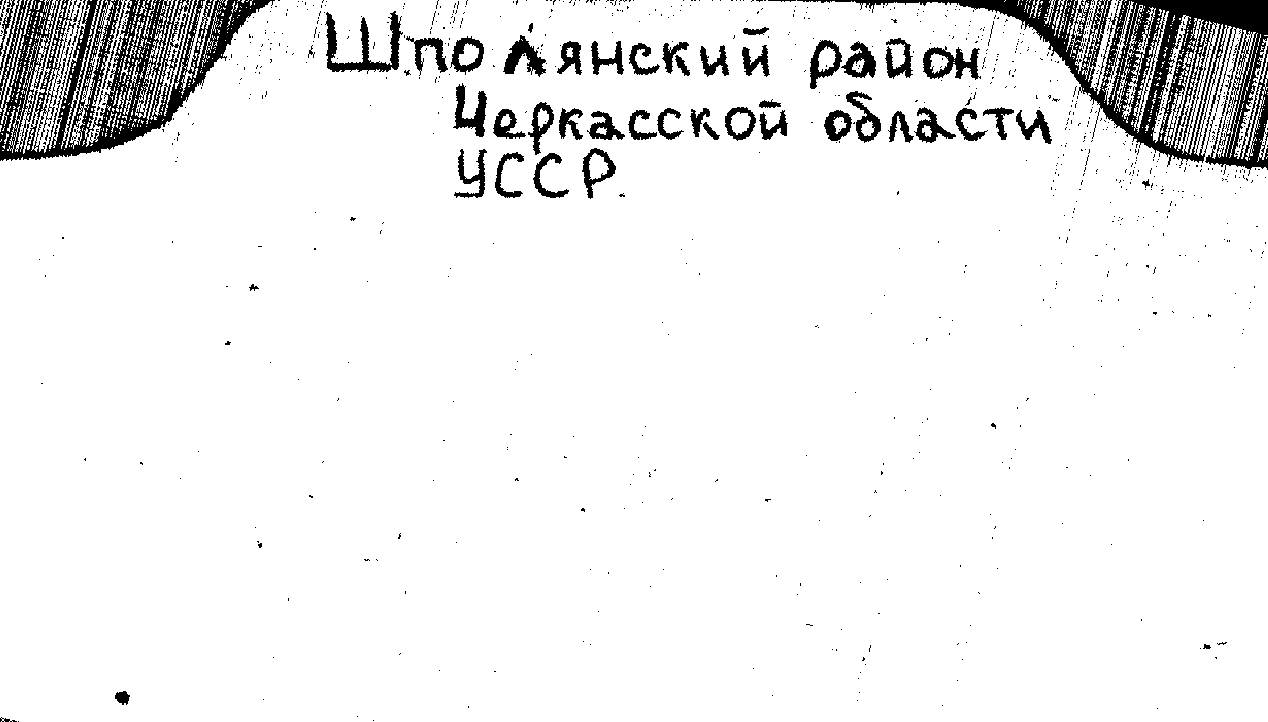 Шполянский район
Черкасской области
УССР.